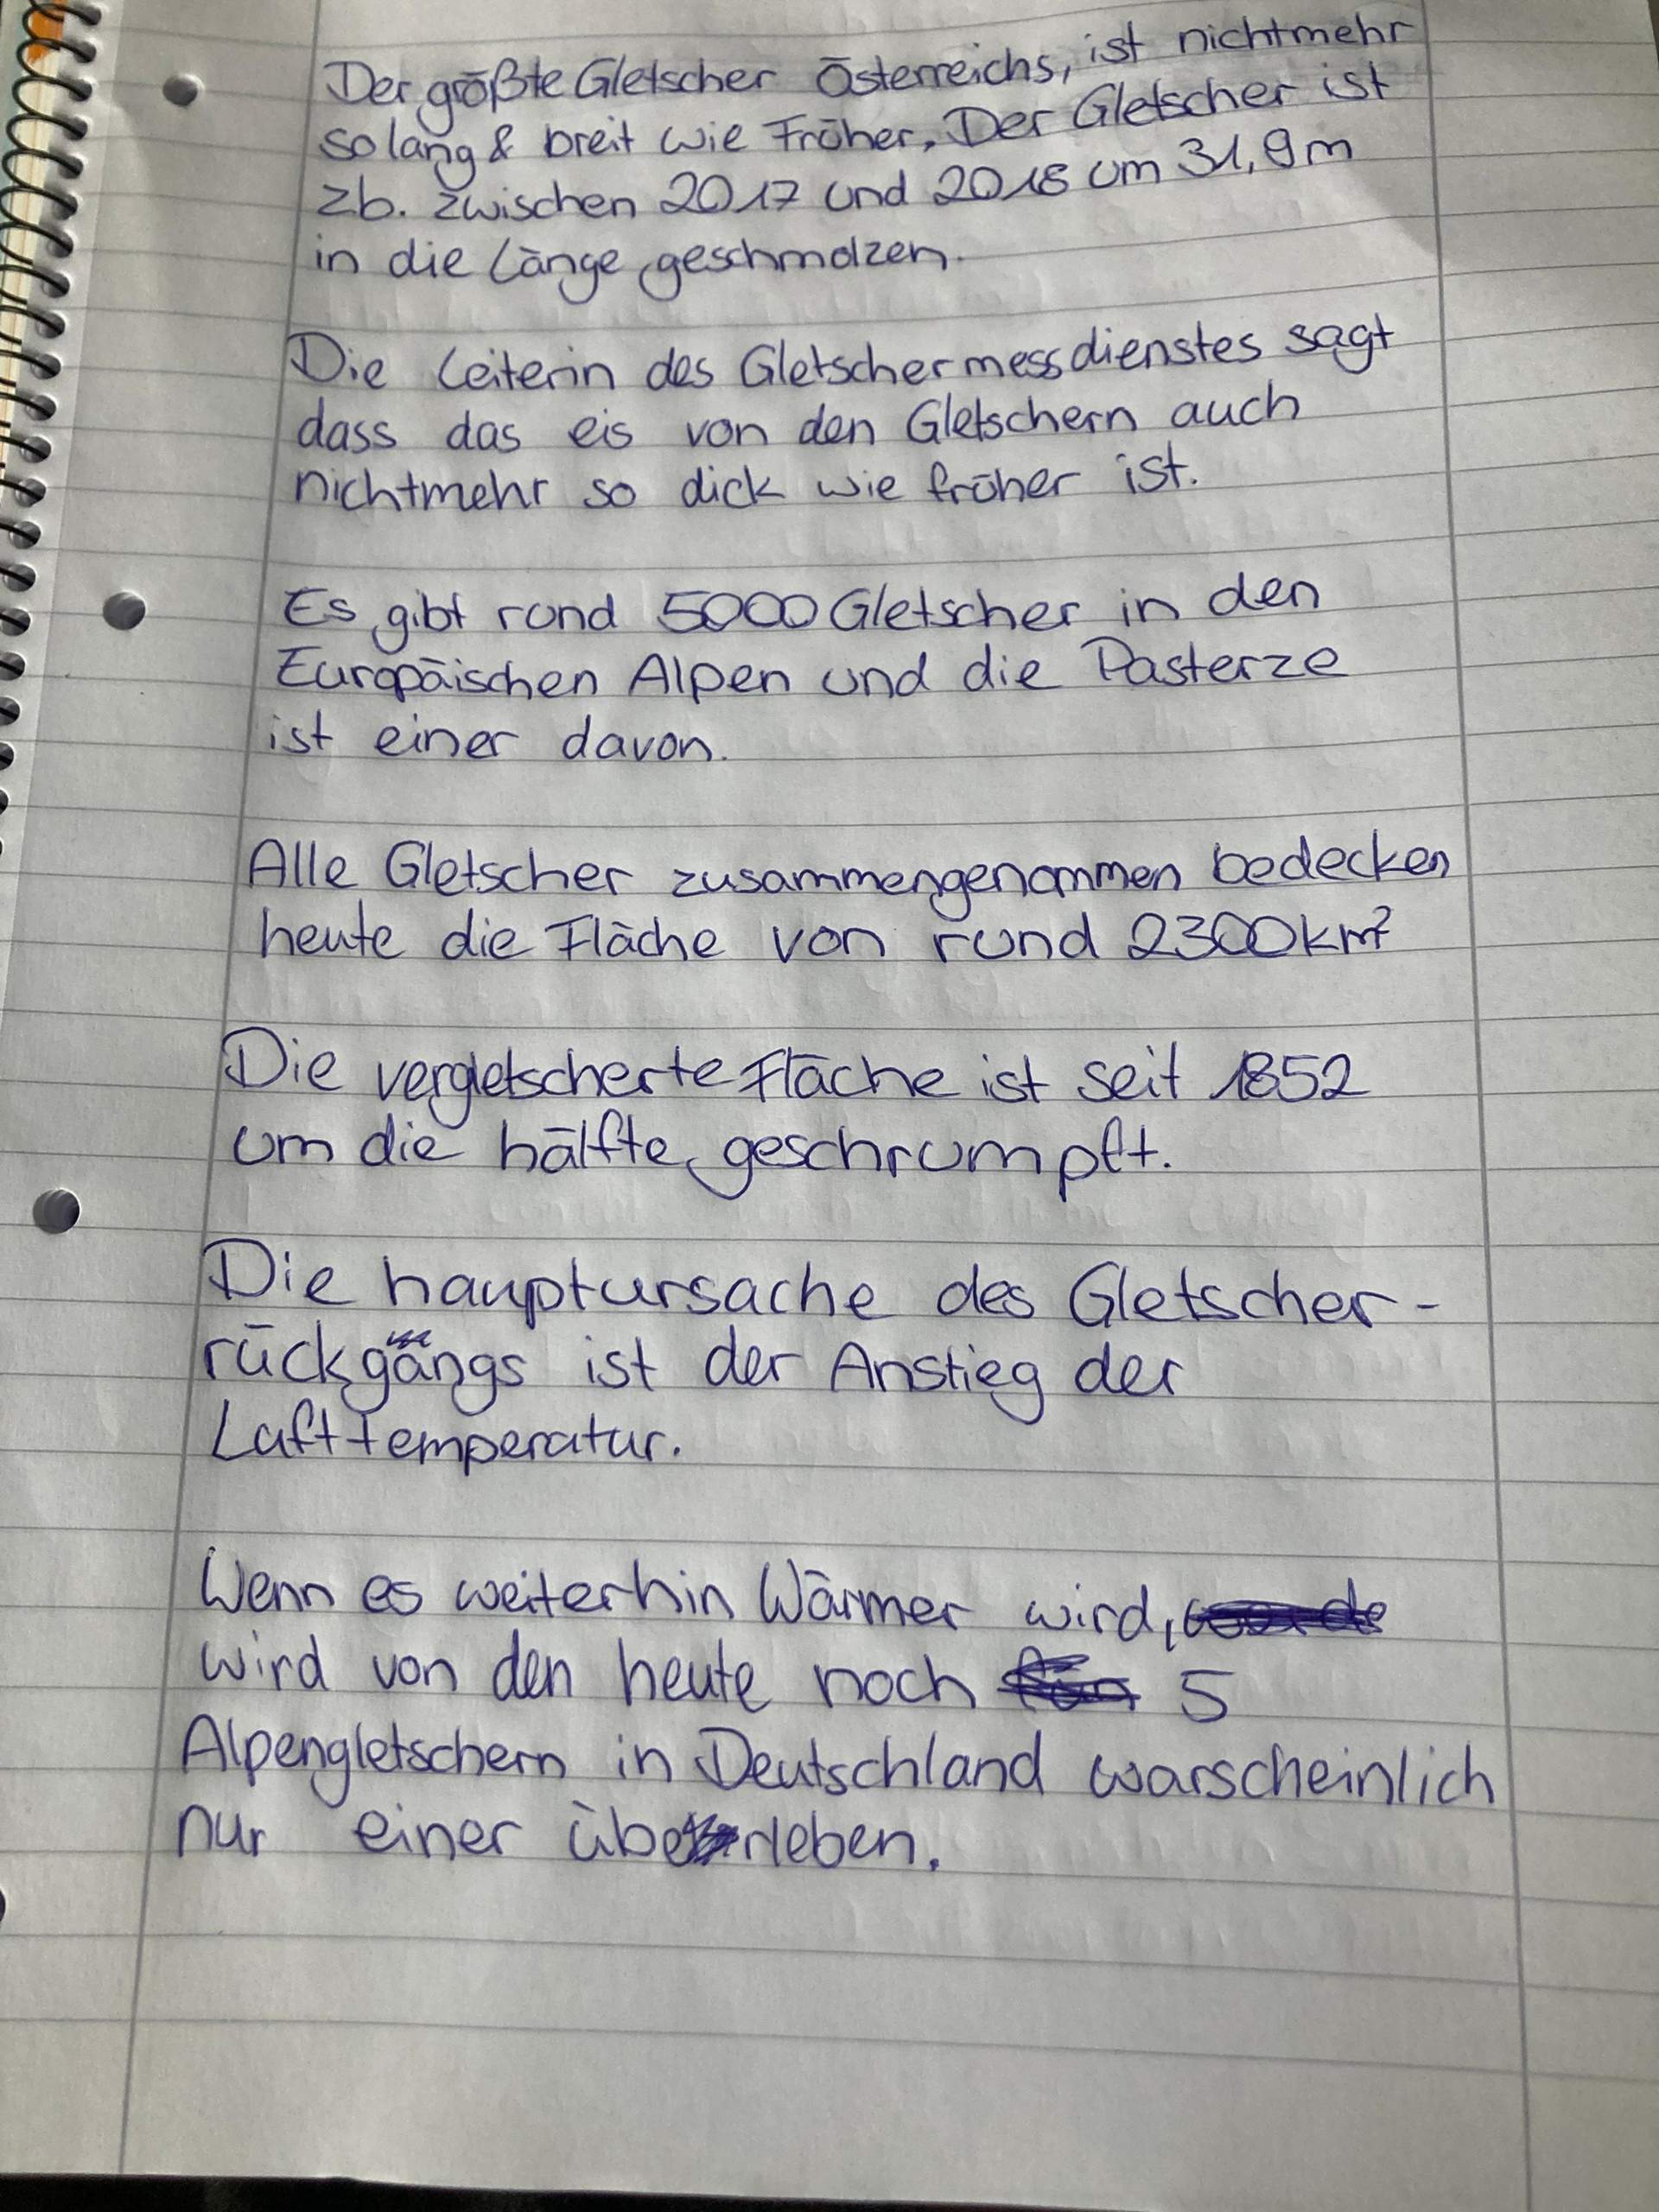 Der größte Gletscher Österreichs, ist nichtmehr
so lang & breit wie Früher. Der Gletscher ist
zb. zwischen 2017 und 2018 um 31,9m
in die Länge geschmolzen.
Die Leiterin des Gletschermessdienstes sagt
dass das eis von den Gletschern auch
nichtmehr so dick wie früher ist.
Es gibt rund 5000 Gletscher in den
Europäischen Alpen und die Pasterze
ist einer davon.
Alle Gletscher zusammengenommen bedecken
heute die Fläche von rund 2300km²
Die vergletscherte Fläche ist seit 1852
um die hälfte geschrumpft.
Die hauptursache des Gletscher-
rückgangs ist der Anstieg der
Lufttemperatur.
Wenn es weiterhin Wärmer wird,
wird von den heute noch 5
Alpengletschern in Deutschland warscheinlich
nur einer überleben.